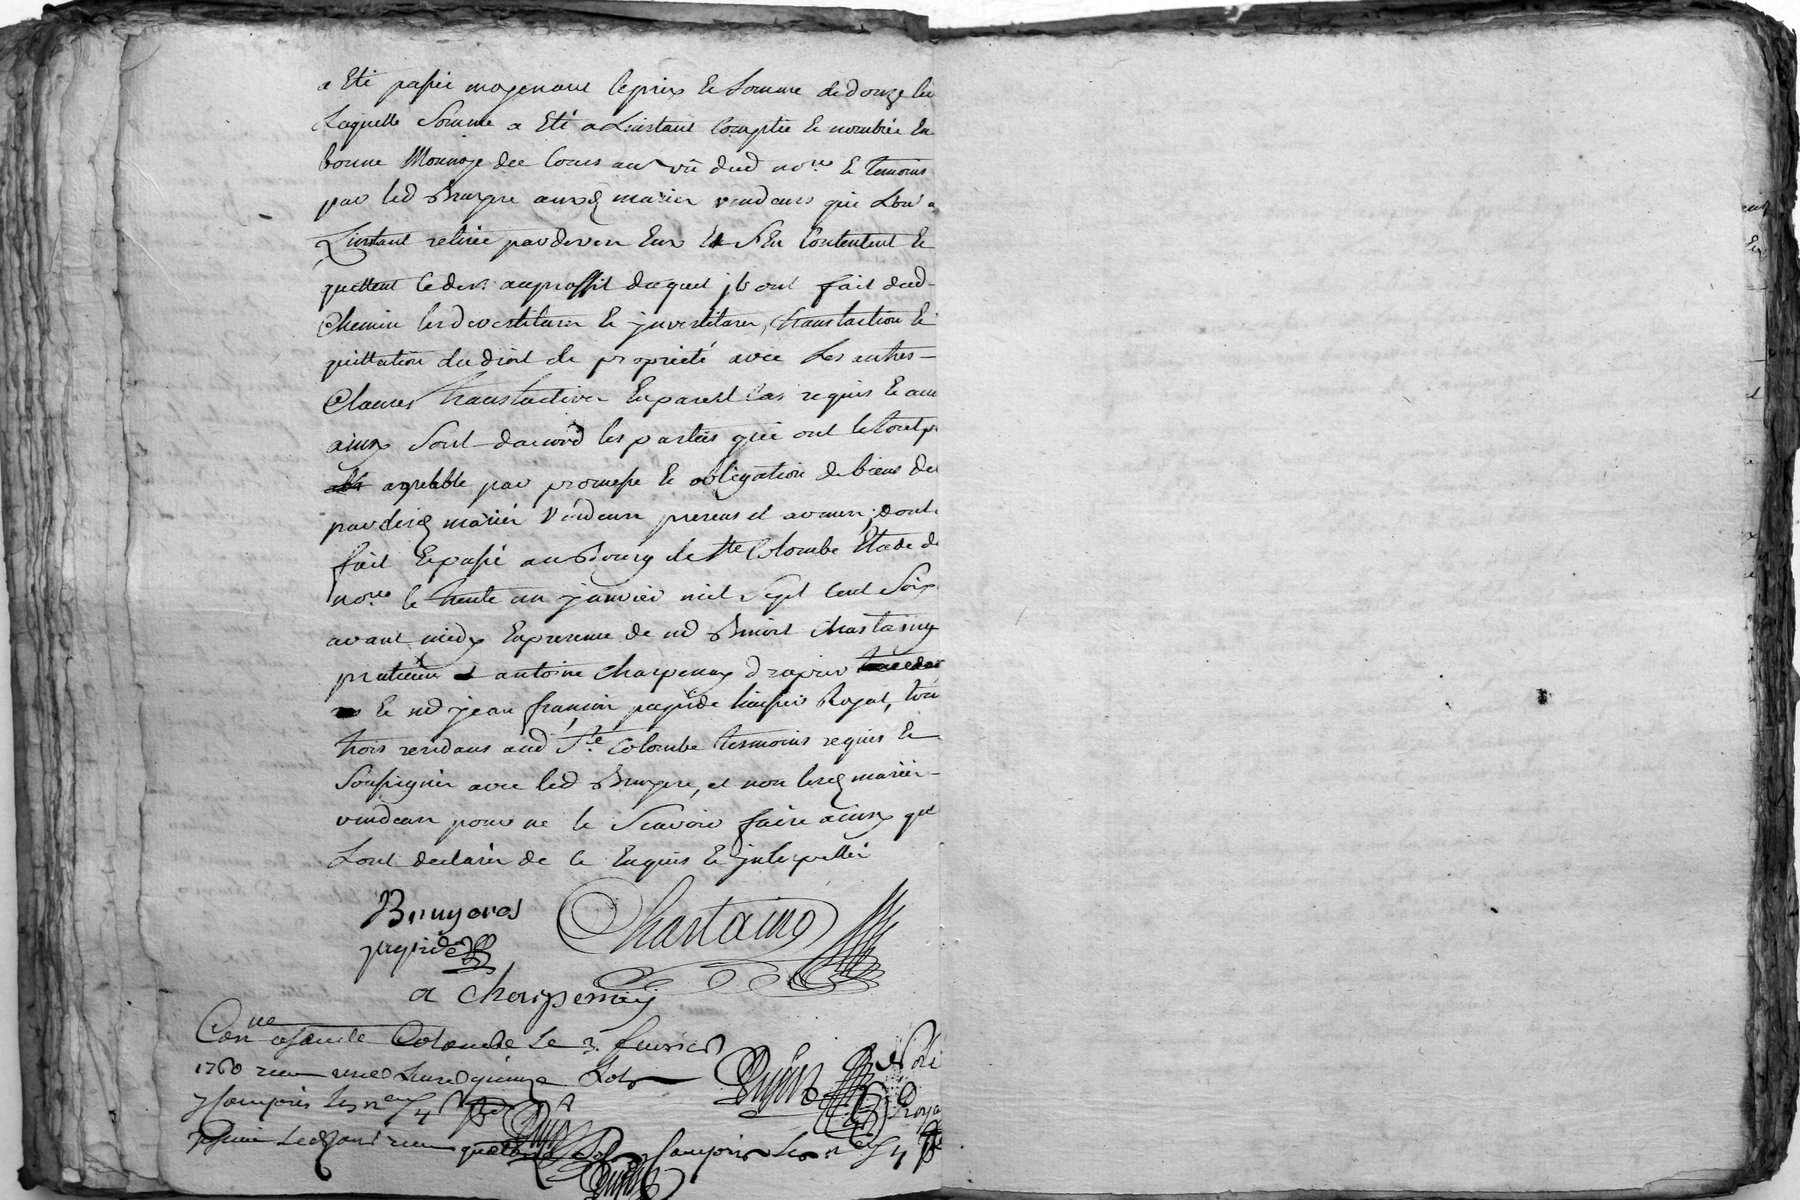 a Eté passée moyenant le prix & Somme de douze li
Laquelle Somme a Eté a Linstant Comptée & nombrée En
bonne Monnoye de Cours au vû dud no.re & temoins
par led Bruyere auxd mariés vendeurs qui Lon a
Linstant retirée pardevers Eux Et S'En Contentent &
quittent au proffit duquel jls ont fait dud
Chemin les devestitures & jnvestitures, translaction &
quittation du droit de proprieté avec Les autres
Clauses translactives En pareil Cas requis &
ainsy Sont daccord les parties qui ont le tout
agreable par promesse & obligation de biens de
par lesd mariés Vendeurs presens et avenir, dont
fait & passé au Bourg de Ste Colombe Etude de
no.re le trente un janvier mil Sept Cent Soix
avant midy En presence de me Benoist Chastaing
praticien antoine Charpenay drapier
& me jean francois pagride huissier Royal, tou
trois residans aud Ste Colombe tesmoins requis &
Soussignés avec led Bruyere, et non lesd mariés
vendeurs pour ne le Scavoir faire ainsy qu
Sont declarés de Ce Enquis & jnterpellés
Bruyeres Chastaing
pagride
a Charpenay
Con.lle a Sainte Colombe Le 3 fevrier
1760 reçu une Livre quinze Sols No
y Compris Les n.en S 4 Roya
reçu quatre Sols y Compris Les n.en S 4